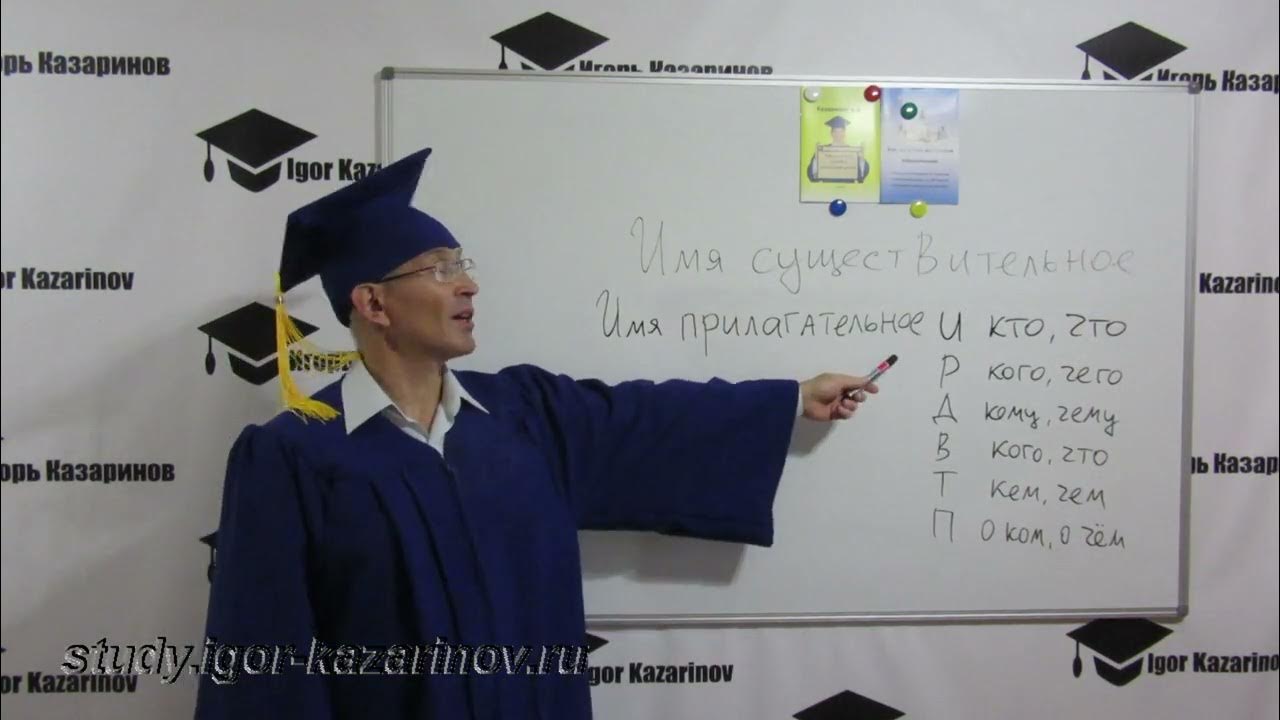 орь Казаринов
Игорь Казаринов
Игорь Казар
Igor Kaza
Казаринов
Имя существительное
gor Kazarinov
Kazarin
Имя прилагательное И кто, что
Р кого, чего
Игорь
Д кому, чему
В кого, что
горь Казаринов
рь Казар
Т кем, чем
П о ком, о чём
study.igor-kazarinov.ru
gor Kazarinov
Igor Kazarinov
Igor Kazarinov